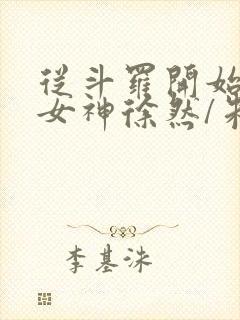 從斗羅開始
女神徐然/
李基洙